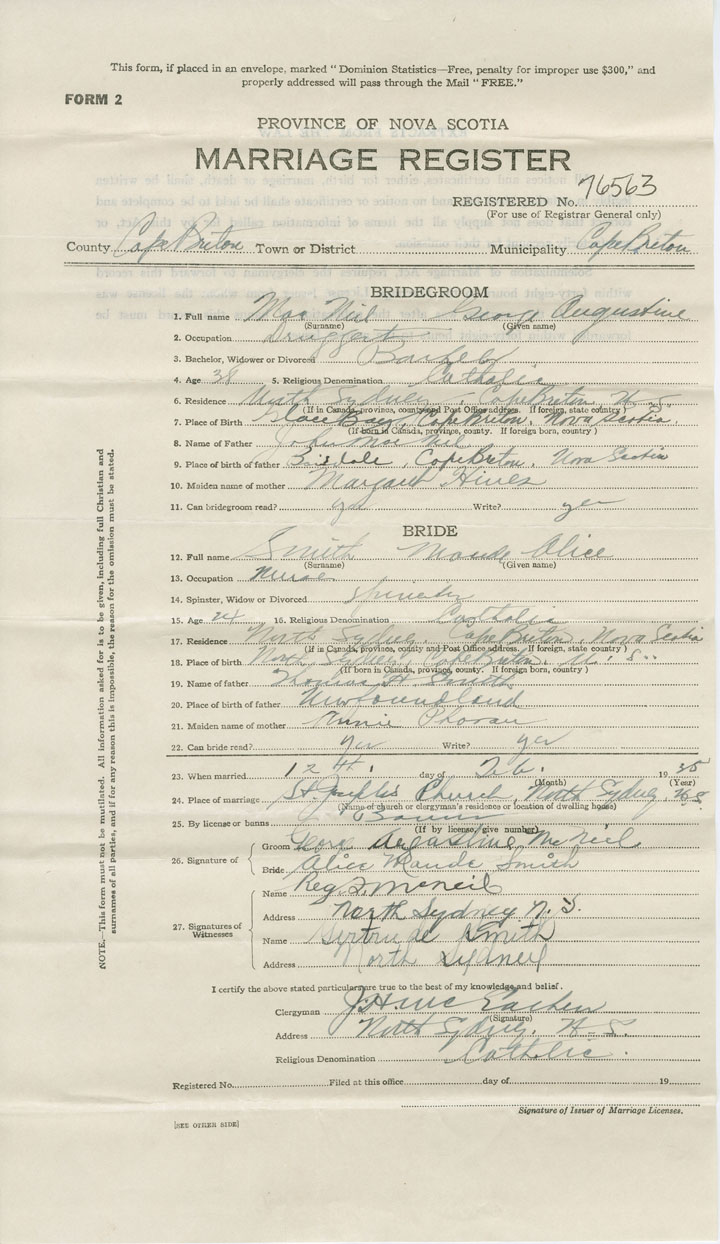 This form, if placed in an envelope, marked "Dominion Statistics—Free, penalty for improper use $300," and
properly addressed will pass through the Mail "FREE."
FORM 2
PROVINCE OF NOVA SCOTIA
MARRIAGE REGISTER
REGISTERED No. 76563
(For use of Registrar General only)
County Cape Breton Town or District Municipality Cape Breton
BRIDEGROOM
1. Full name Mac Neil George Augustine
(Surname) (Given name)
2. Occupation Druggist
3. Bachelor, Widower or Divorced Bachelor
4. Age 38 5. Religious Denomination Catholic
6. Residence North Sydney, Cape Breton, N. S.
(If in Canada, province, county and Post Office address. If foreign, state country)
7. Place of Birth Glace Bay, Cape Breton, Nova Scotia.
(If born in Canada, province, county. If foreign born, country)
8. Name of Father John Mac Neil
9. Place of birth of father , Cape Breton, Nova Scotia
10. Maiden name of mother Margaret Hines
11. Can bridegroom read? yes Write? yes
BRIDE
12. Full name Smith Maude Alice
(Surname) (Given name)
13. Occupation Nurse
14. Spinster, Widow or Divorced Spinster
15. Age 24 16. Religious Denomination Catholic
17. Residence North Sydney, Cape Breton, Nova Scotia
(If in Canada, province, county and Post Office address. If foreign, state country)
18. Place of birth North Sydney, Cape Breton, N. S.
(If born in Canada, province, county. If foreign born, country)
19. Name of father Thomas H. Smith
20. Place of birth of father Newfoundland
21. Maiden name of mother Annie
22. Can bride read? yes Write? yes
23. When married 12th. day of Feb. 1935
(Month) (Year)
24. Place of marriage St. Joseph's Church, North Sydney, N.S.
(Name of church or clergyman's residence or location of dwelling house)
25. By license or banns Banns
(If by license, give number)
26. Signature of Groom George Augustine McNeil
Bride Alice Maude Smith
27. Signatures of Witnesses Name Reg. J. McNeil
Address North Sydney N. S.
Name Gertrude Smith
Address North Sydney
I certify the above stated particulars are true to the best of my knowledge and belief.
Clergyman J. H. McEachen
(Signature)
Address North Sydney. N. S.
Religious Denomination Catholic.
Registered No. Filed at this office day of 19
Signature of Issuer of Marriage Licenses.
[SEE OTHER SIDE]
NOTE.—This form must not be mutilated. All information asked for is to be given, including full Christian and
surnames of all parties, and if for any reason this is impossible, the reason for the omission must be stated.